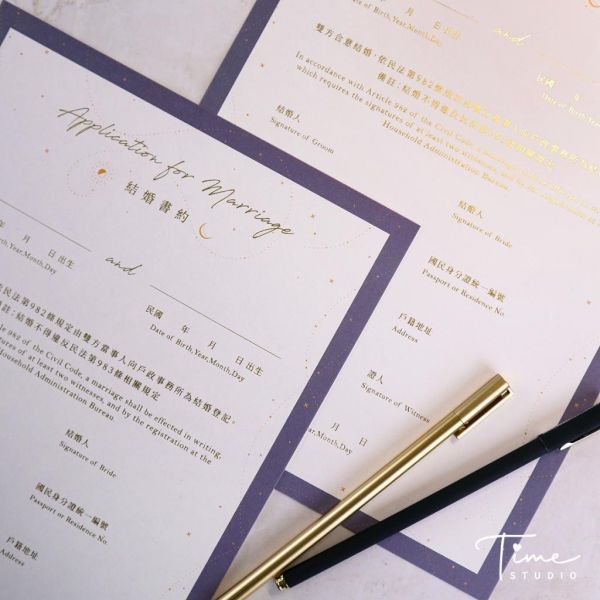 Application for Marriage
結婚書約
年 月 日出生
Birth,Year,Month,Day
and
民國 年 月 日出生
Date of Birth,Year,Month,Day
民法第982條規定由雙方當事人向戶政事務所為結婚登記。
註：結婚不得違反民法第983條相關規定
982 of the Civil Code, a marriage shall be effected in writing,
of at least two witnesses, and by the registration at the
Household Administration Bureau
結婚人
Signature of Bride
國民身分證統一編號
Passport or Residence No.
戶籍地址
Address
民國 年 月 日出生
Date of Birth,Year,Month,Day
and
民國
Date of Birth,Year
雙方合意結婚，依民法第982
備註：結婚不得違反民法
In accordance with Article 982 of the Civil Code, a marriage
which requires the signatures of at least two witnesses, and by the
Household Administration Bureau
結婚人
Signature of Groom
結婚人
Signature of Bride
國民身分證統一編號
Passport or Residence No.
戶籍地址
Address
證人
Signature of Witness
月 日
Year,Month,Day
Time
STUDIO